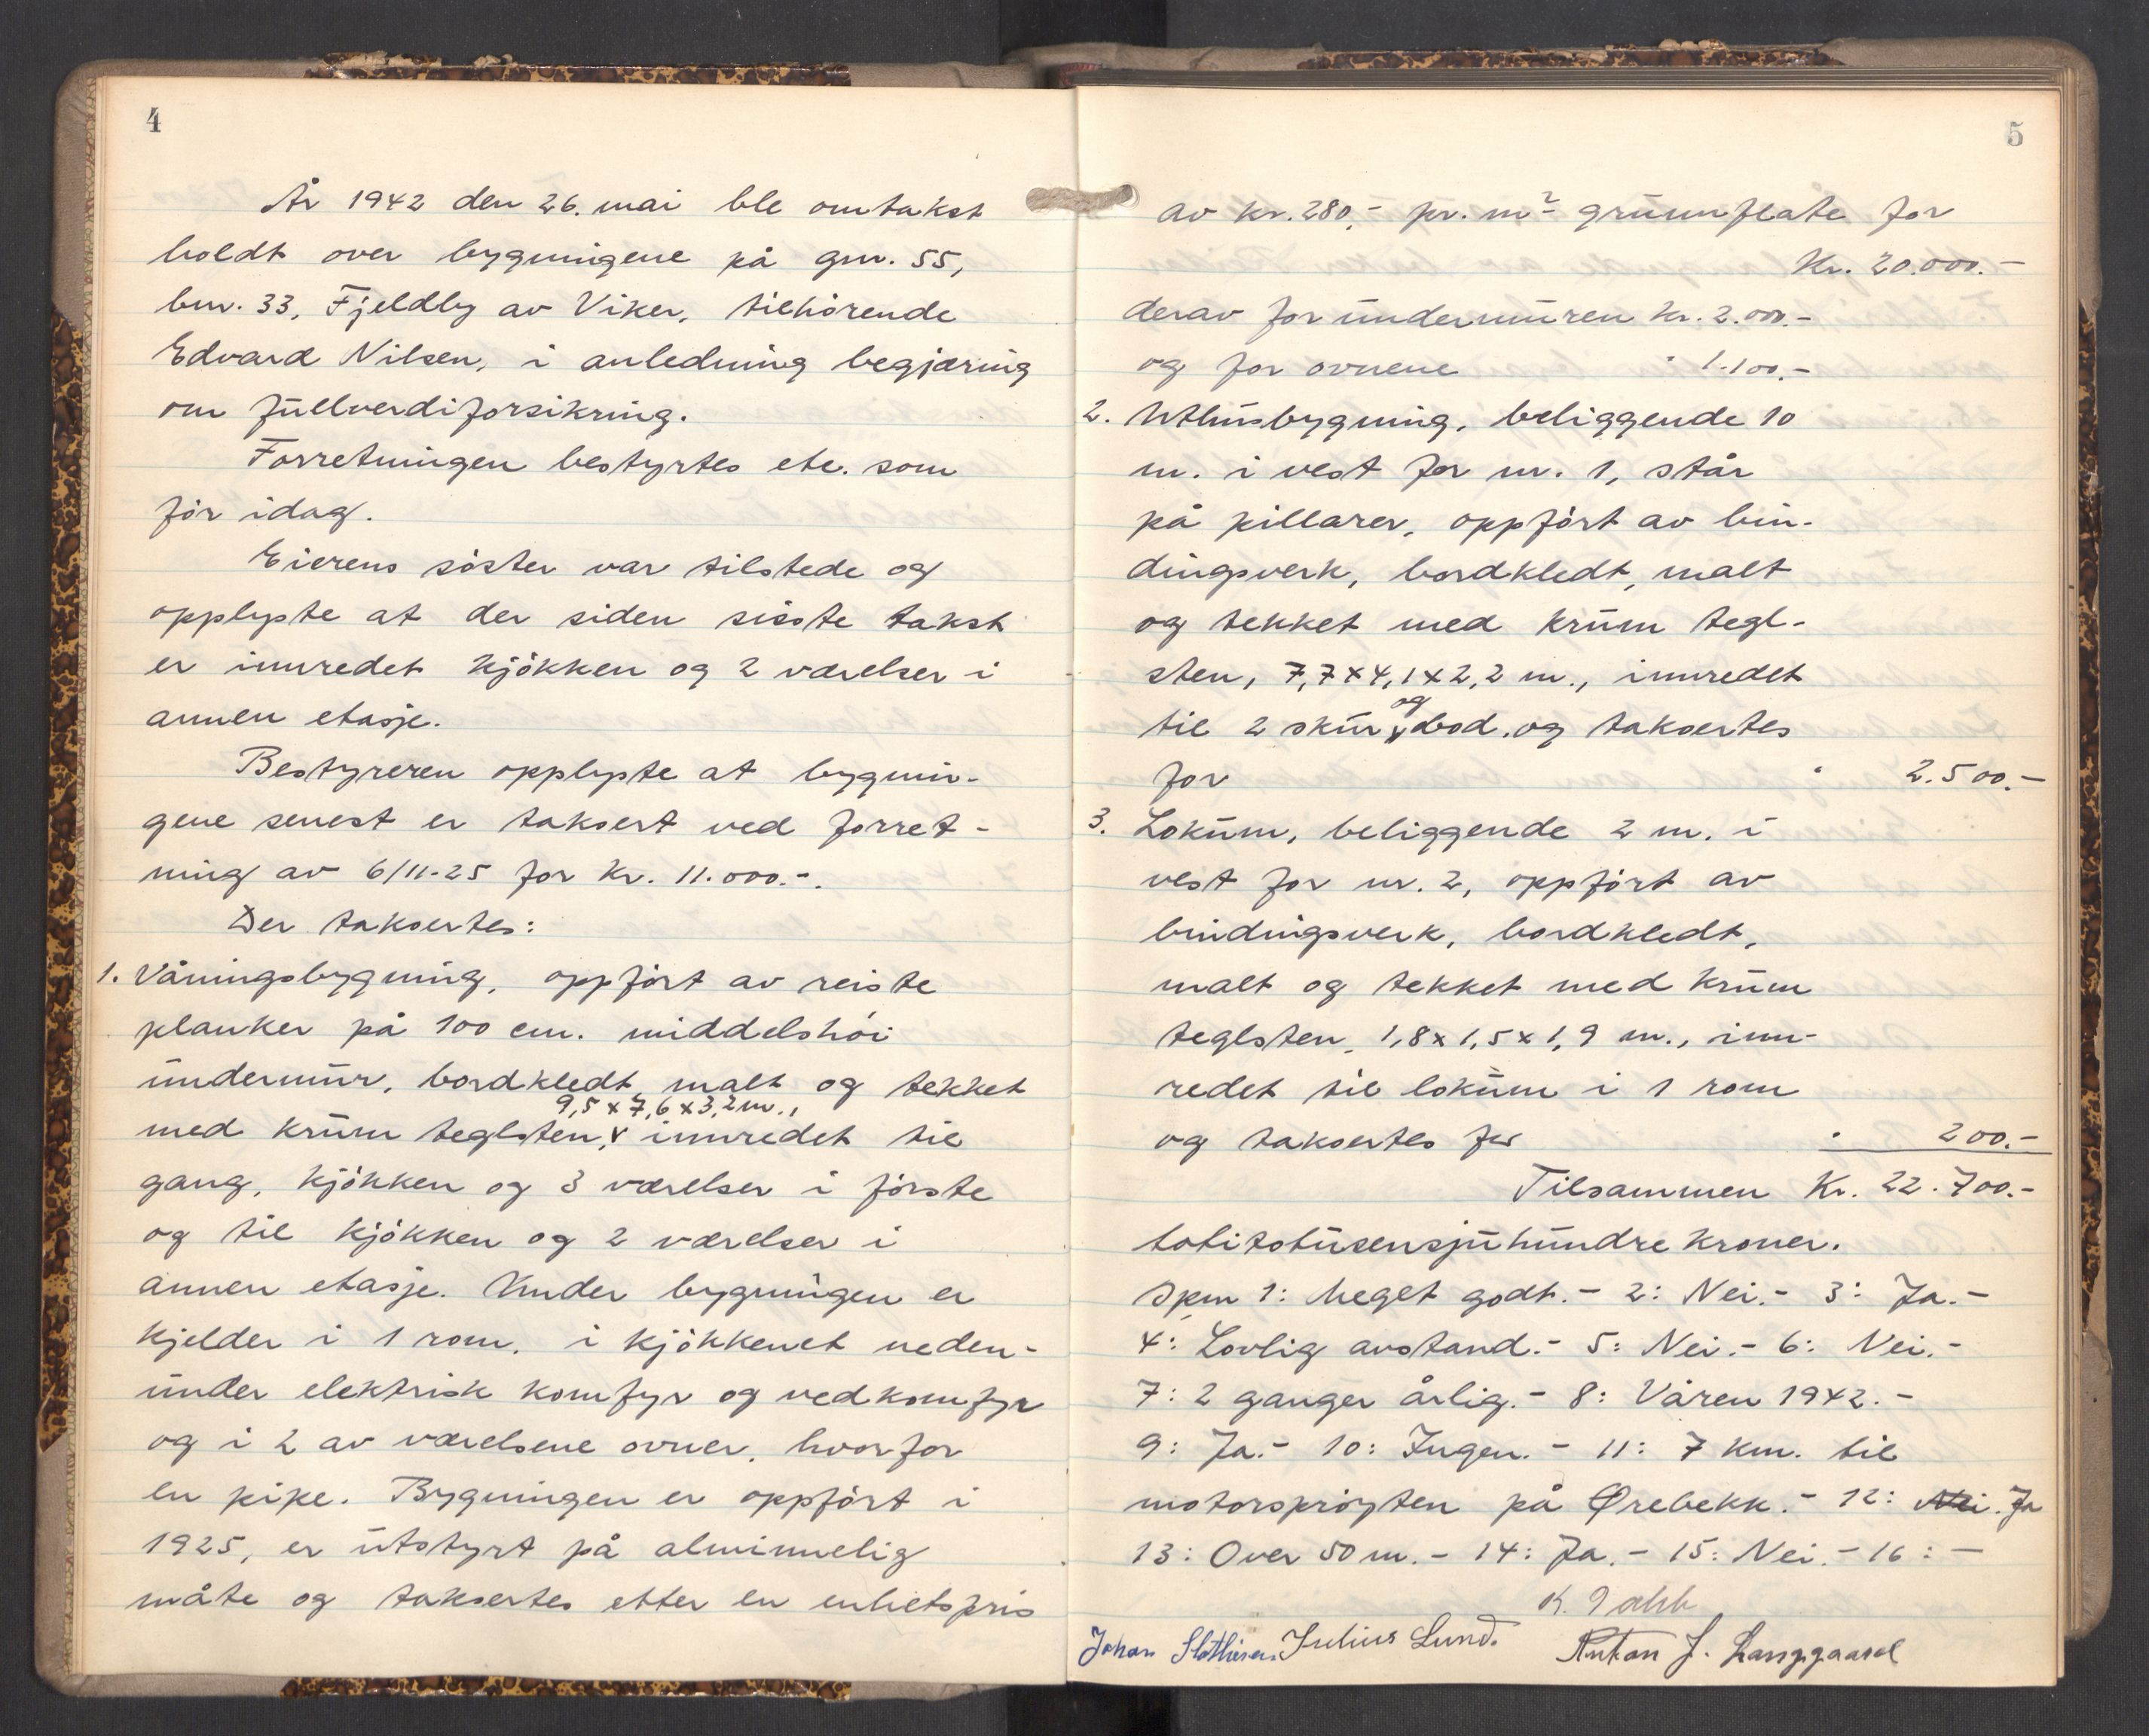 4
År 1942 den 26. mai ble omtakst
holdt over bygningene på gnr. 55,
bnr. 33, Fjeldby av Viker, tilhörende
Edvard Nilsen, i anledning begjæring
om fullverdiforsikring.
Forretningen bestyrtes etc. som
för idag.
Eierens söster var tilstede og
opplyste at der siden sisste takst
er innredet kjökken og 2 værelser i
annen etasje.
Bestyreren opplyste at bygnin-
gene senest er taksert ved forret-
ning av 6/11-25 for kr. 11.000.-.
Der taksertes:
1. Våningsbygning, oppfört av reiste
planker på 100 cm. middelshöi
undermur, bordkledt, malt og tekket
med krum teglsten, 9,5 x 7,6 x 3,2 m., innredet til
gang, kjökken og 3 værelser i förste
og til kjökken og 2 værelser i
annen etasje. Under bygningen er
kjelder i 1 rom, i kjökkenet neden-
under elektrisk komfyr og vedkomfyr
og i 2 av værelsene ovner, hvorfor
en pipe. Bygningen er oppfört i
1925, er utstyrt på alminnelig
måte og taksertes etter en enhetspris
5
av kr. 280,- pr. m² grunnflate for
Kr. 20.000.-
derav for undermuren kr. 2.000.-
og for ovnene " 1.100.-
2. Uthusbygning, beliggende 10
m. i vest for nr. 1, står
på pillarer, oppfört av bin-
dingsverk, bordkledt, malt
og tekket med krum tegl-
sten, 7,7 x 4,1 x 2,2 m., innredet
til 2 skur og bod, og taksertes
for " 2.500.-
3. Lokum, beliggende 2 m. i
vest for nr. 2, oppfört av
bindingsverk, bordkledt,
malt og tekket med krum
teglsten, 1,8 x 1,5 x 1,9 m., inn-
redet til lokum i 1 rom
og taksertes for " 200.-
Tilsammen Kr. 22.700.-
totitotusensjuhundre kroner.
Spm 1: Meget godt.- 2: Nei.- 3: Ja.-
4: Lovlig avstand.- 5: Nei.- 6: Nei.-
7: 2 ganger årlig.- 8: Våren 1942.-
9: Ja.- 10: Ingen.- 11: 7 km. til
motorspröyten på Ørebekk.- 12: Nei. Ja
13: Over 50 m.- 14: Ja.- 15: Nei.- 16: -
K.
Johan Julius Lund. Anton J. Langgaard